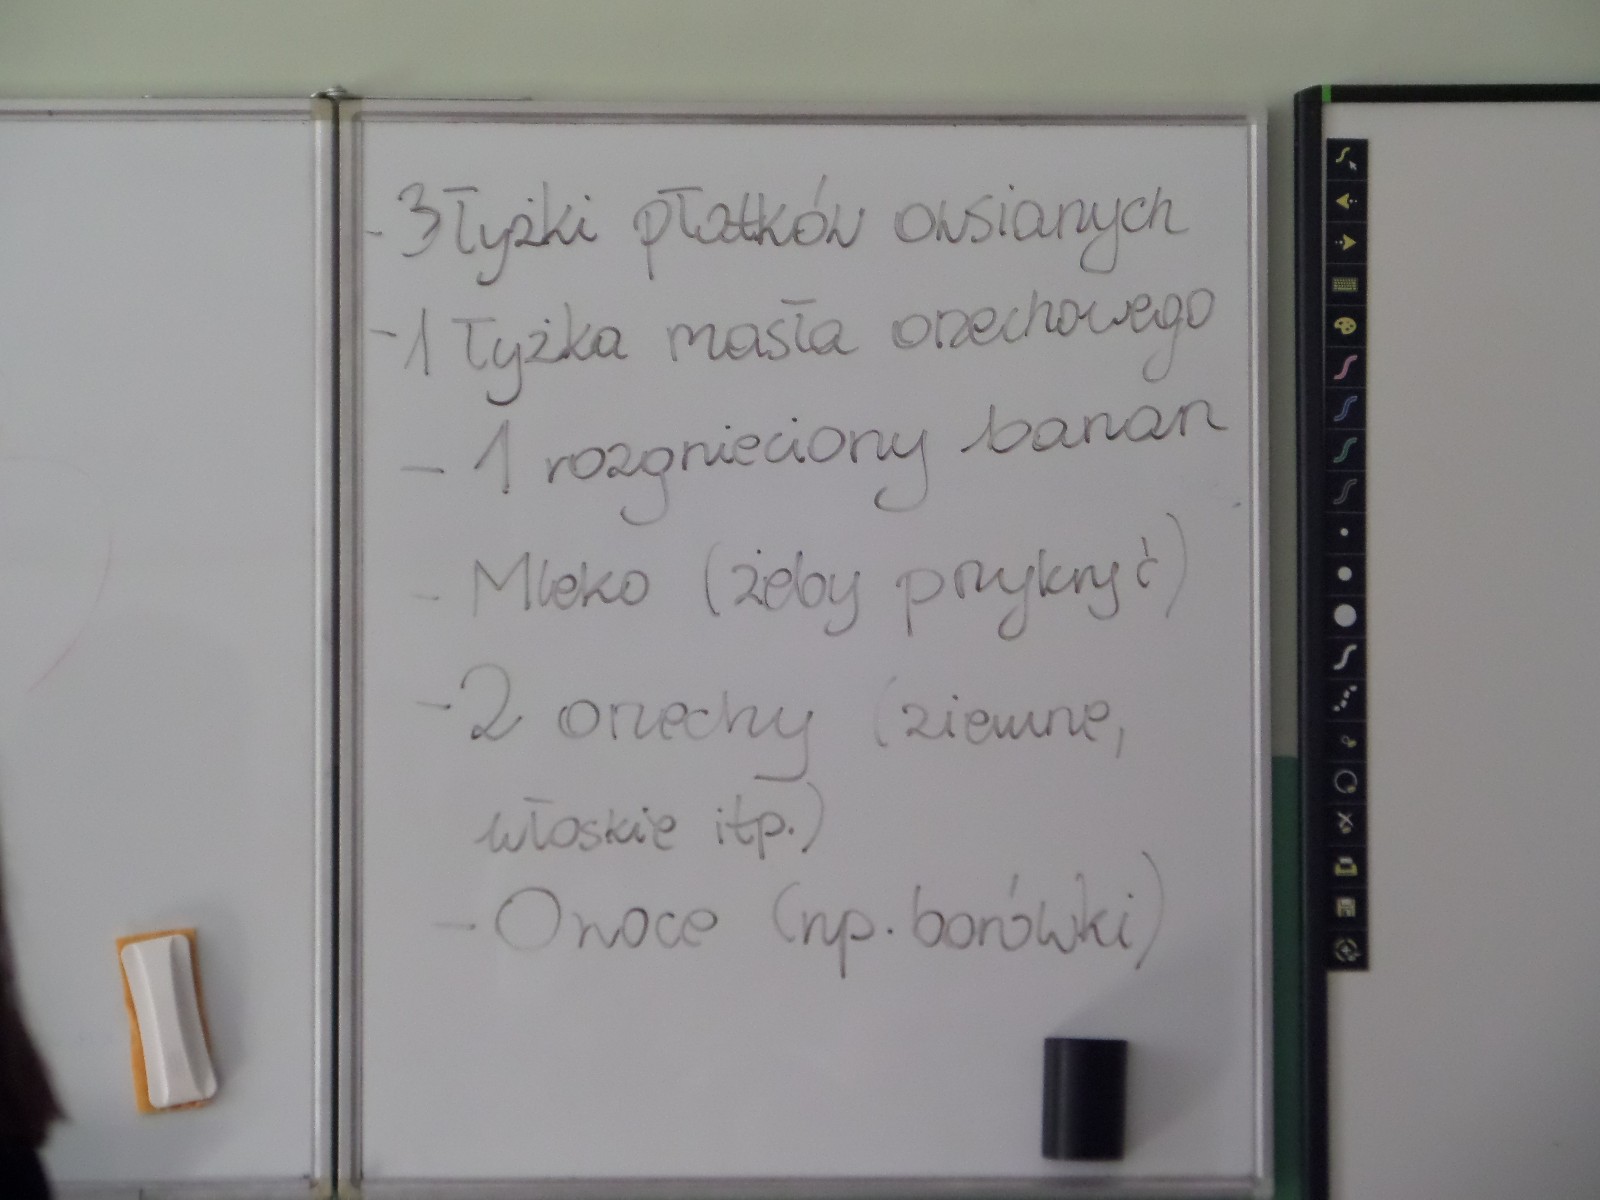 - 3 łyżki płatków owsianych
- 1 łyżka masła orzechowego
- 1 rozgnieciony banan
- Mleko (żeby przykryć)
- 2 orzechy (ziemne,
włoskie itp.)
- Owoce (np. borówki)